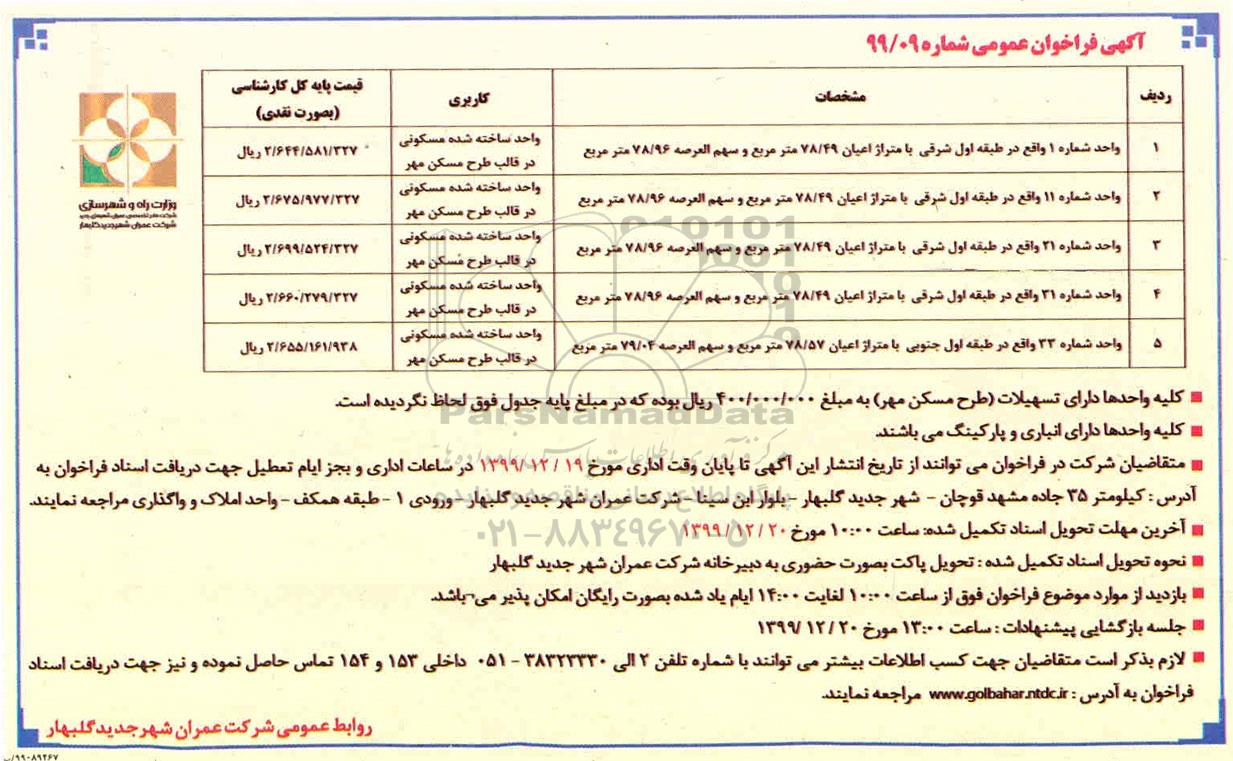 آگهی فراخوان عمومی شماره ۹۹/۰۹
ردیف مشخصات کاربری قیمت پایه کل کارشناسی (بصورت نقدی)
۱ واحد شماره ۱ واقع در طبقه اول شرقی با متراژ اعیان ۷۸/۴۹ متر مربع و سهم العرصه ۷۸/۹۶ متر مربع واحد ساخته شده مسکونی در قالب طرح مسکن مهر ۲/۶۴۴/۵۸۱/۳۲۷ ریال
۲ واحد شماره ۱۱ واقع در طبقه اول شرقی با متراژ اعیان ۷۸/۴۹ متر مربع و سهم العرصه ۷۸/۹۶ متر مربع واحد ساخته شده مسکونی در قالب طرح مسکن مهر ۲/۶۷۵/۹۷۷/۳۲۷ ریال
۳ واحد شماره ۲۱ واقع در طبقه اول شرقی با متراژ اعیان ۷۸/۴۹ متر مربع و سهم العرصه ۷۸/۹۶ متر مربع واحد ساخته شده مسکونی در قالب طرح مسکن مهر ۲/۶۹۹/۵۲۴/۳۲۷ ریال
۴ واحد شماره ۳۱ واقع در طبقه اول شرقی با متراژ اعیان ۷۸/۴۹ متر مربع و سهم العرصه ۷۸/۹۶ متر مربع واحد ساخته شده مسکونی در قالب طرح مسکن مهر ۲/۶۶۰/۲۷۹/۳۲۷ ریال
۵ واحد شماره ۳۳ واقع در طبقه اول جنوبی با متراژ اعیان ۷۸/۵۷ متر مربع و سهم العرصه ۷۹/۰۴ متر مربع واحد ساخته شده مسکونی در قالب طرح مسکن مهر ۲/۶۵۵/۱۶۱/۹۳۸ ریال
وزارت راه و شهرسازی
شرکت عمران شهر جدید گلبهار
کلیه واحدها دارای تسهیلات (طرح مسکن مهر) به مبلغ ۴۰۰/۰۰۰/۰۰۰ ریال بوده که در مبلغ پایه جدول فوق لحاظ نگردیده است.
کلیه واحدها دارای انباری و پارکینگ می باشند.
متقاضیان شرکت در فراخوان می توانند از تاریخ انتشار این آگهی تا پایان وقت اداری مورخ ۱۳۹۹/۱۲/۱۹ در ساعات اداری و بجز ایام تعطیل جهت دریافت اسناد فراخوان به
آدرس : کیلومتر ۳۵ جاده مشهد قوچان - شهر جدید گلبهار - بلوار ابن سینا - شرکت عمران شهر جدید گلبهار - ورودی ۱ - طبقه همکف - واحد املاک و واگذاری مراجعه نمایند.
آخرین مهلت تحویل اسناد تکمیل شده: ساعت ۱۰:۰۰ مورخ ۱۳۹۹/۱۲/۲۰
نحوه تحویل اسناد تکمیل شده : تحویل پاکت بصورت حضوری به دبیرخانه شرکت عمران شهر جدید گلبهار
بازدید از موارد موضوع فراخوان فوق از ساعت ۱۰:۰۰ لغایت ۱۴:۰۰ ایام یاد شده بصورت رایگان امکان پذیر می باشد.
جلسه بازگشایی پیشنهادات : ساعت ۱۳:۰۰ مورخ ۱۳۹۹/۱۲/۲۰
لازم بذکر است متقاضیان جهت کسب اطلاعات بیشتر می توانند با شماره تلفن ۲ الی ۳۸۳۲۳۳۳۰ - ۰۵۱ داخلی ۱۵۳ و ۱۵۴ تماس حاصل نموده و نیز جهت دریافت اسناد
فراخوان به آدرس : www.golbahar.ntdc.ir مراجعه نمایند.
روابط عمومی شرکت عمران شهر جدید گلبهار
ParsNamadData
۰۲۱-۸۸۳۴۹۶۷۰-۵